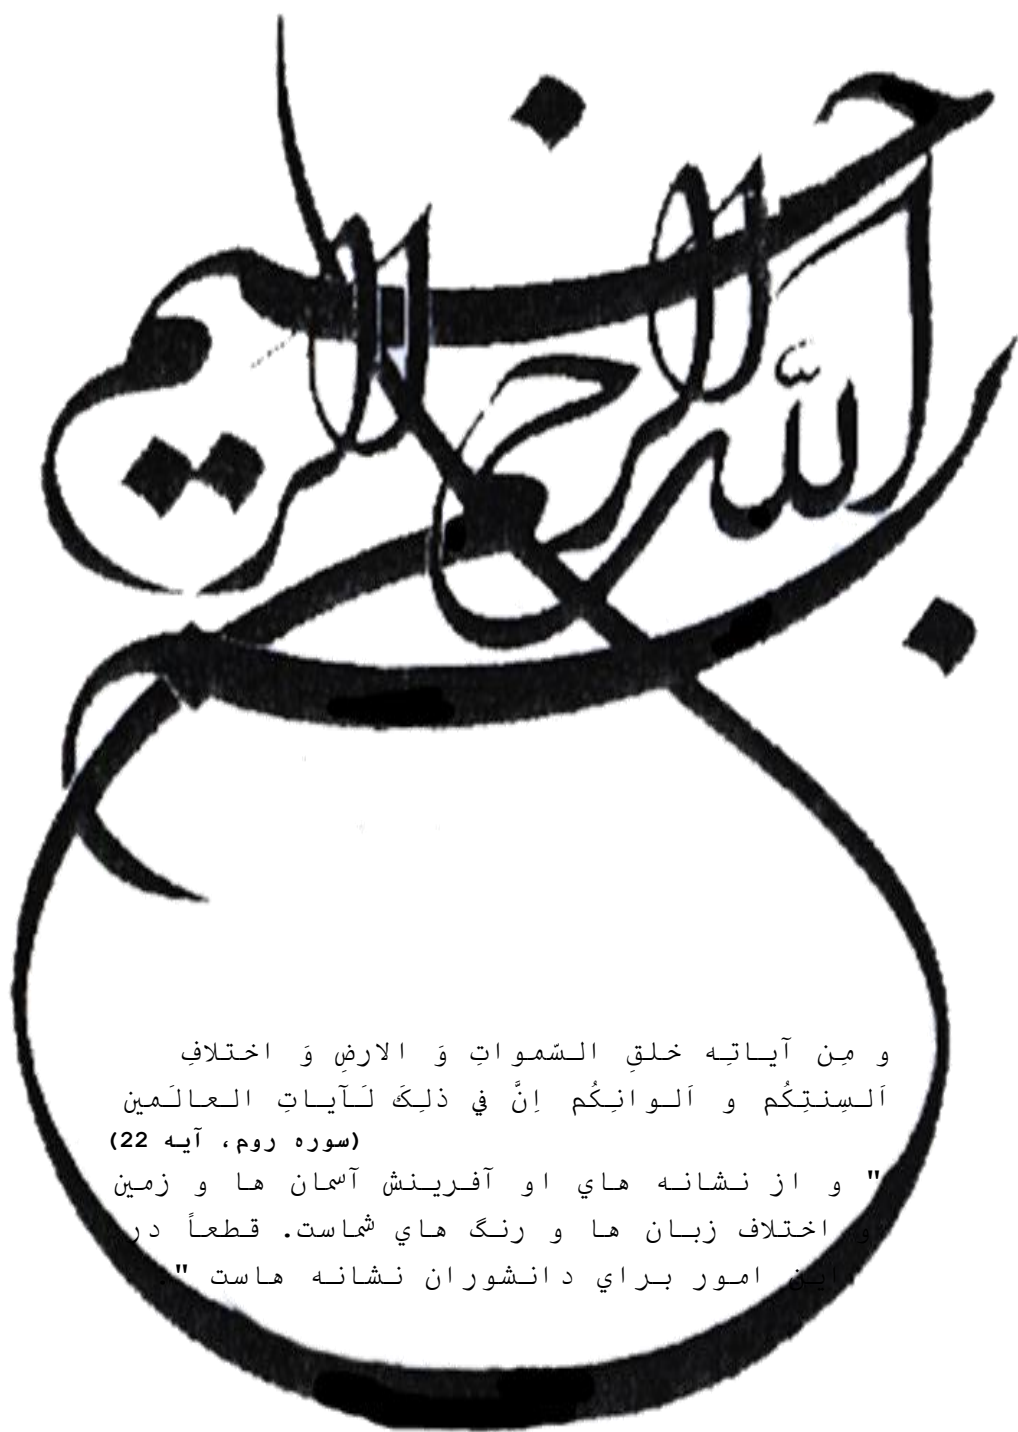 بسم الله الرحمن الرحیم
و مِن آیاتِه خلقِ السّمواتِ وَ الارضِ وَ اختلافِ
اَلسِنتِكُم و اَلوانِكُم اِنَّ في ذلِكَ لَآیاتِ العالَمین
(سوره روم، آیه 22)
" و از نشانه هاي او آفرینش آسمان ها و زمین
و اختلاف زبان ها و رنگ هاي شماست. قطعاً در
این امور براي دانشوران نشانه هاست ".